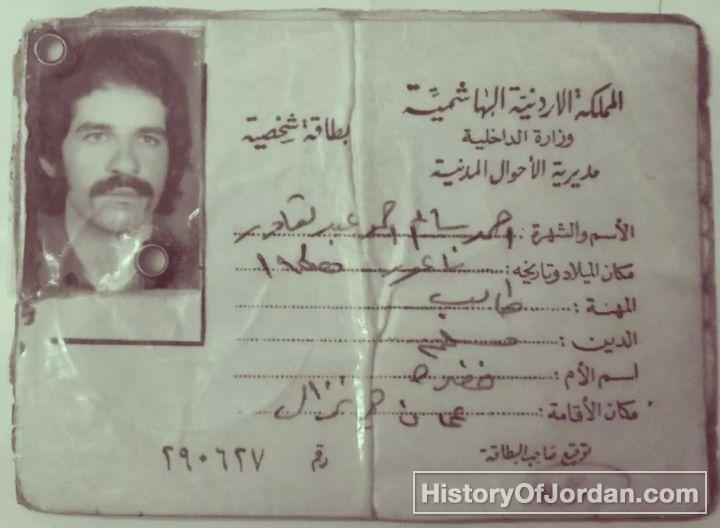 المملكة الاردنية الهاشمية
وزارة الداخلية
مديرية الأحوال المدنية
بطاقة شخصية
الأسم والشهرة: احمد سالم احمد عبد القادر
مكان الميلاد وتاريخه:
المهنة: طالب
الدين: مسلم
اسم الأم: خضره
مكان الأقامة: عمان نزال
توقيع صاحب البطاقة
رقم ٢٩٠٦٢٧
HistoryOfJordan.com